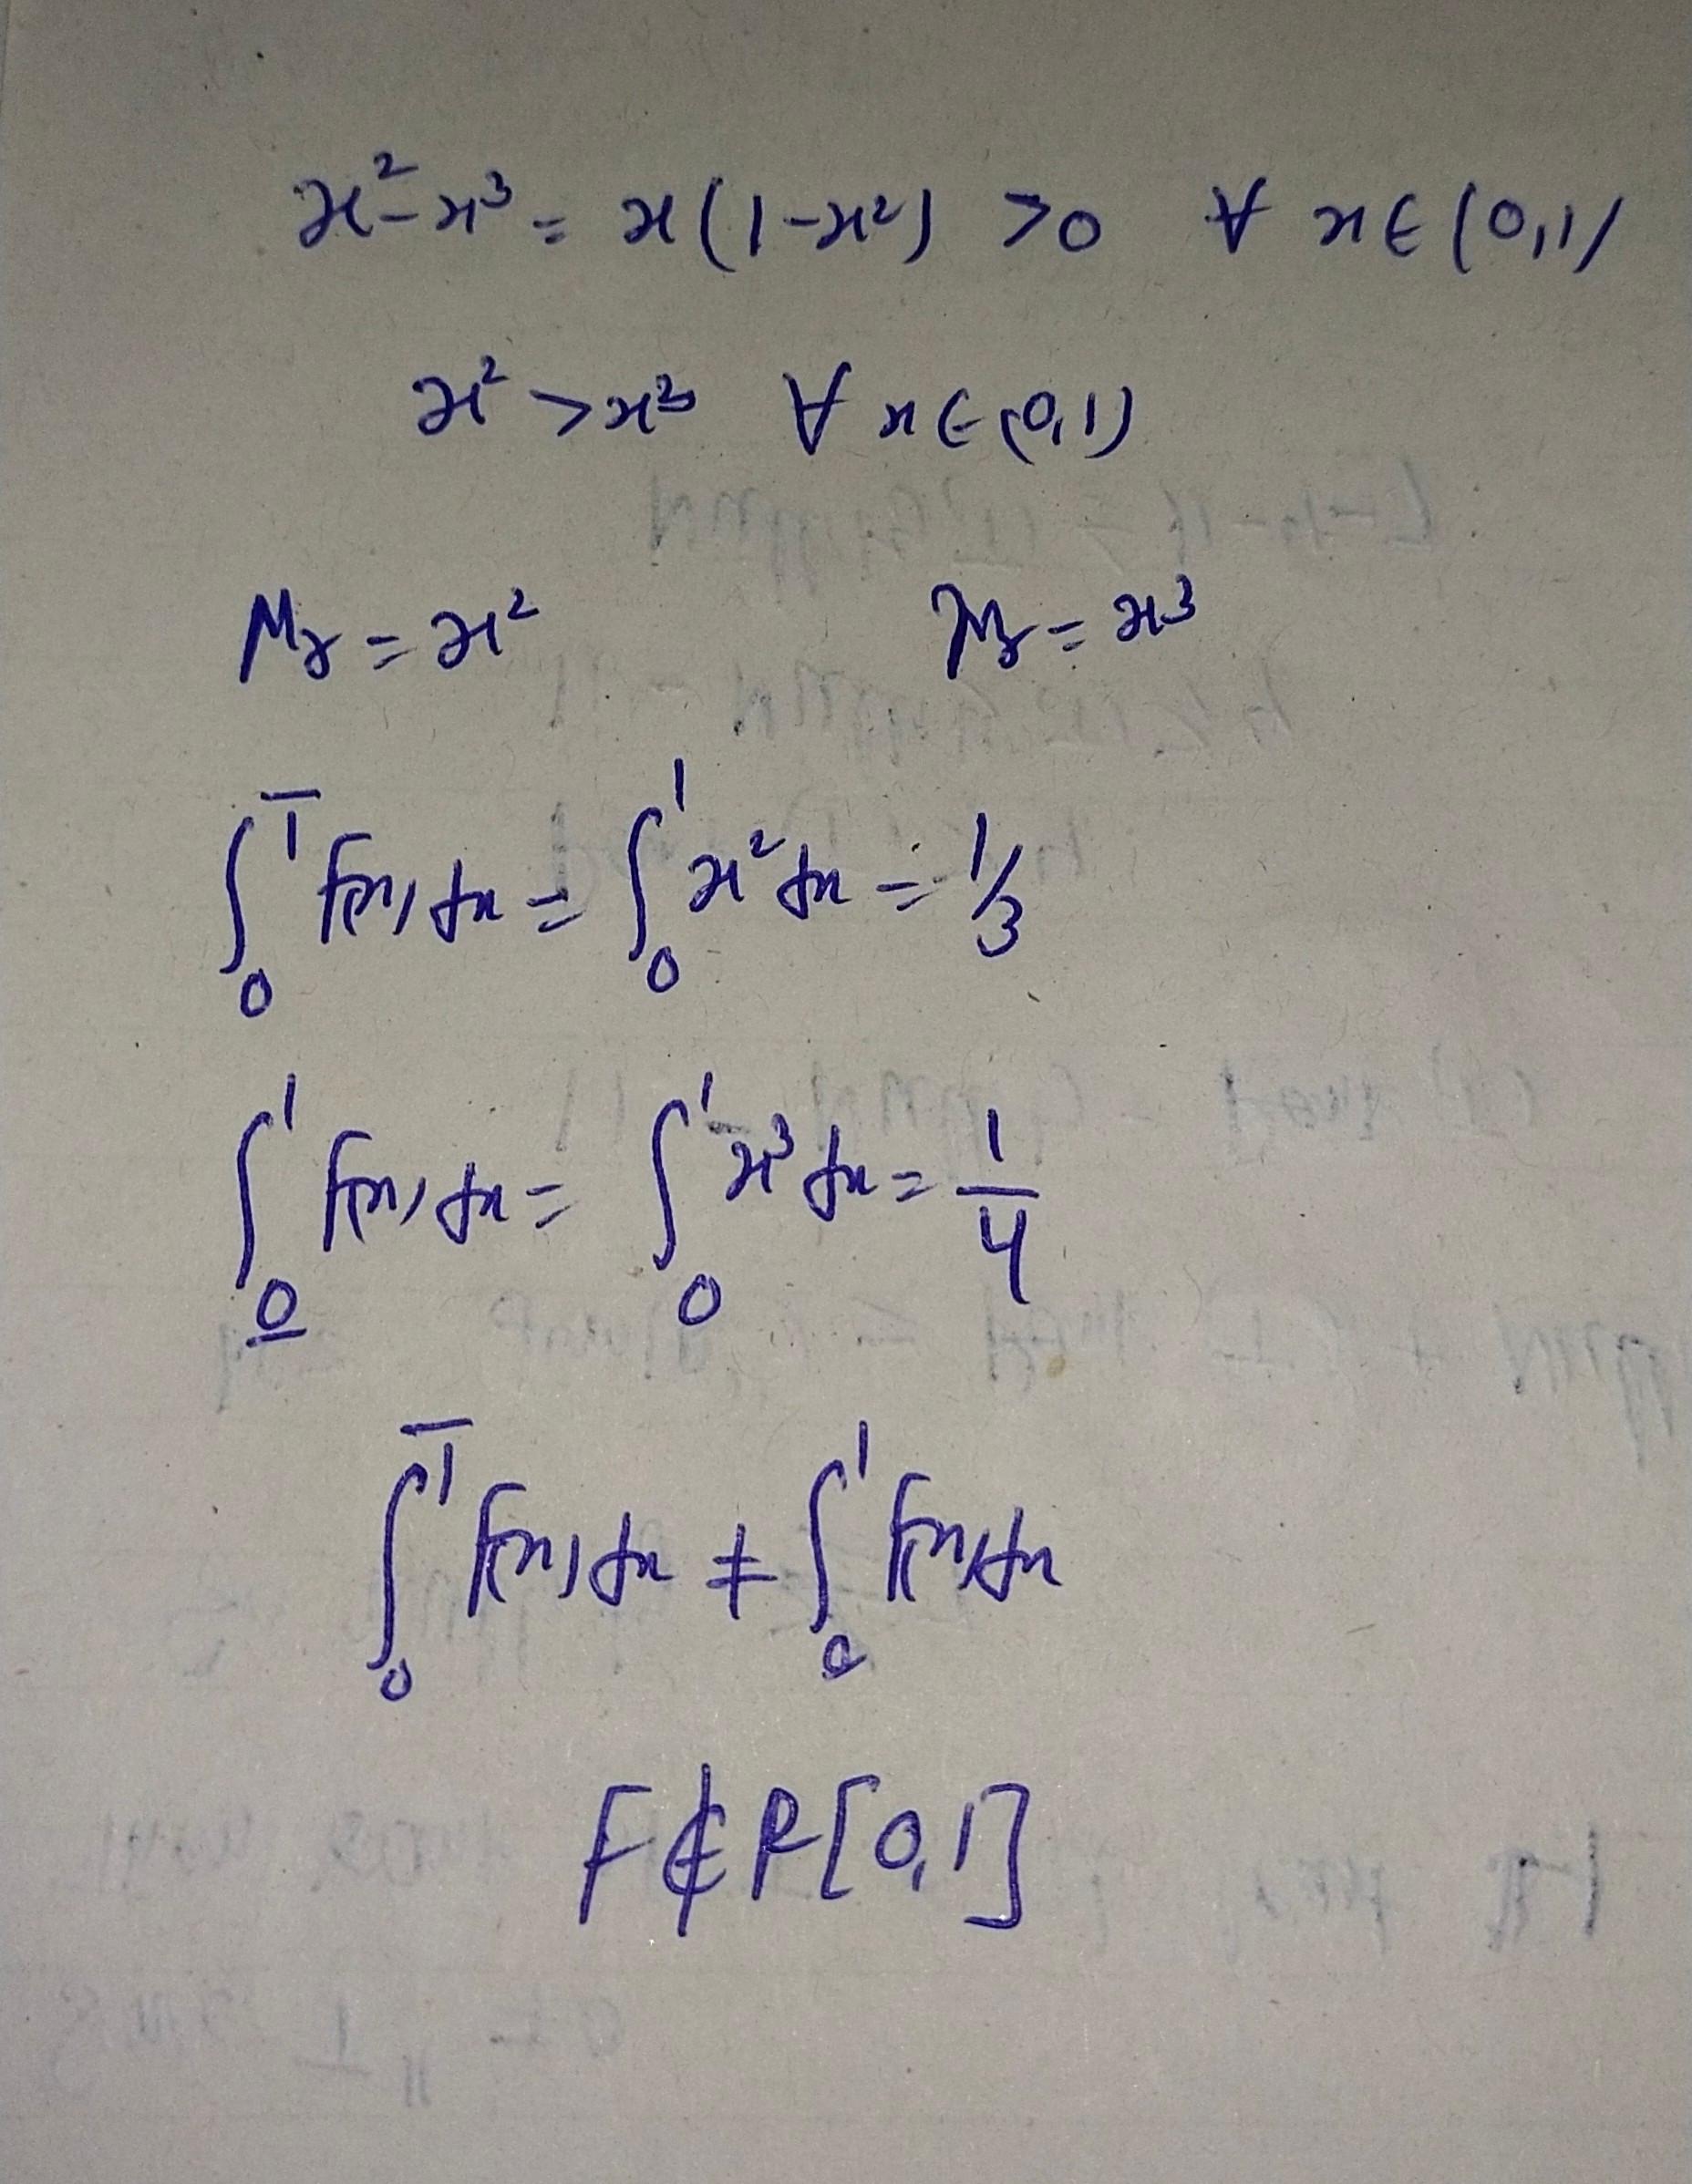 x²-x³ = x(1-x²) >0 ∀ x∈(0,1)
x² > x³ ∀ x∈(0,1)
Mr = x² mr = x³
∫₀^1̅ f(x) dx = ∫₀¹ x² dx = 1/3
∫_0̲^1 f(x) dx = ∫₀¹ x³ dx = 1/4
∫₀^1̅ f(x) dx ≠ ∫₀¹ f(x) dx
F∉R[0,1]